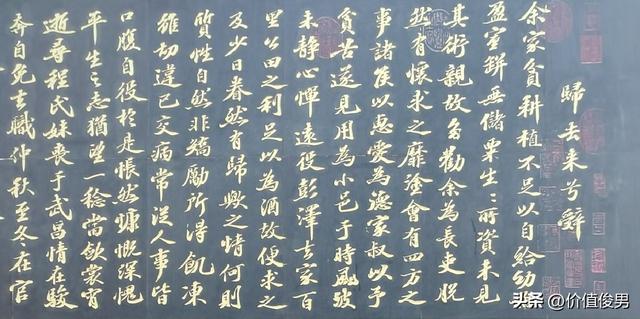 歸去来兮辭
余家貧耕植不足以自給幼稚
盈室缾無儲粟生〻所資未見
其術親故多勸余為長吏脫
然有懷求之靡塗會有四方之
事諸侯以惠愛為德家叔以予
貧苦遂見用為小邑于時風波
未静心憚遠役彭澤去家百
里公田之利足以為酒故便求之
及少日眷然有歸歟之情何則
質性自然非矯勵所得飢凍
雖切違己交病常從人事皆
口腹自役於是悵然慷慨深愧
平生之志猶望一稔當斂裳宵
逝尋程氏妹喪于武昌情在駿
奔自免去職仲秋至冬在官
头条 @价值俊男